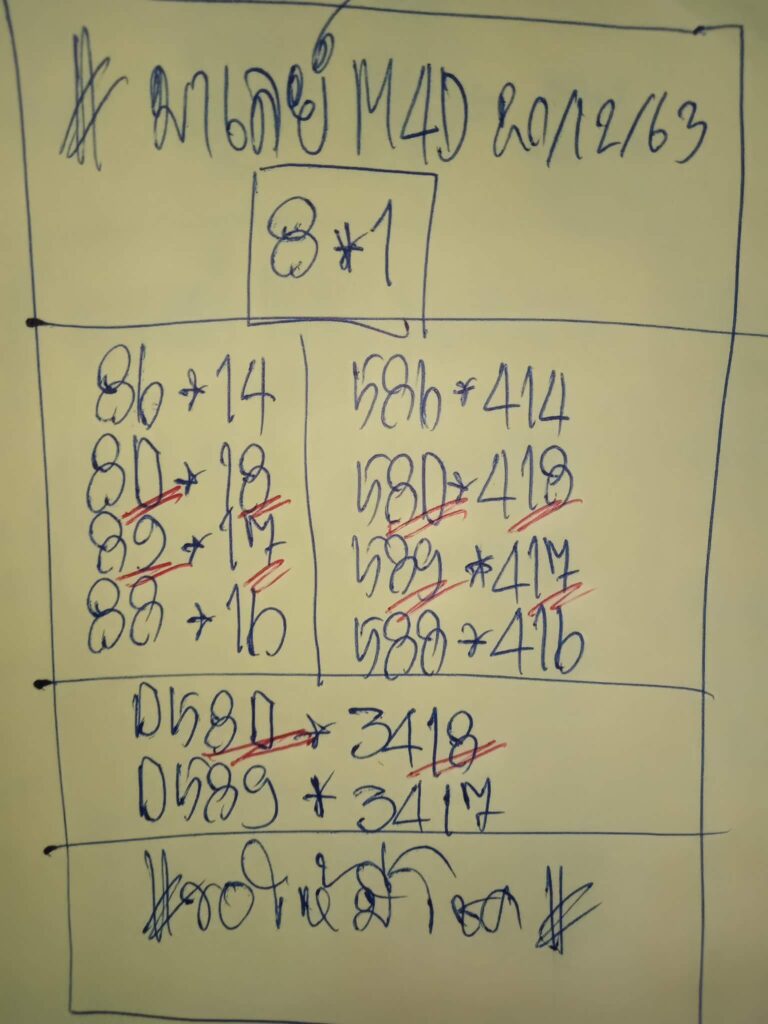 # มาเลย์ M4D 20/12/63
8*1
86*14
80*18
89*17
88*16
586*414
580*418
589*417
588*416
0580*3418
0589*3417
#ขอให้มีโชค#